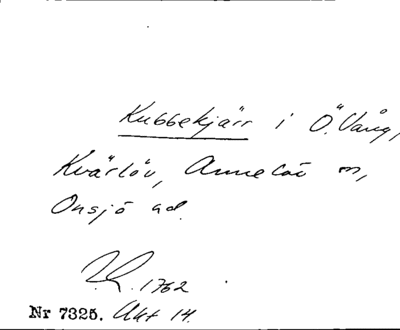 Kubbekjärr i Ö. Vång,
Kvärlöv, Annelöv sn,
Onsjö hd.
L.R. 1762
Nr 7325. Akt 14.